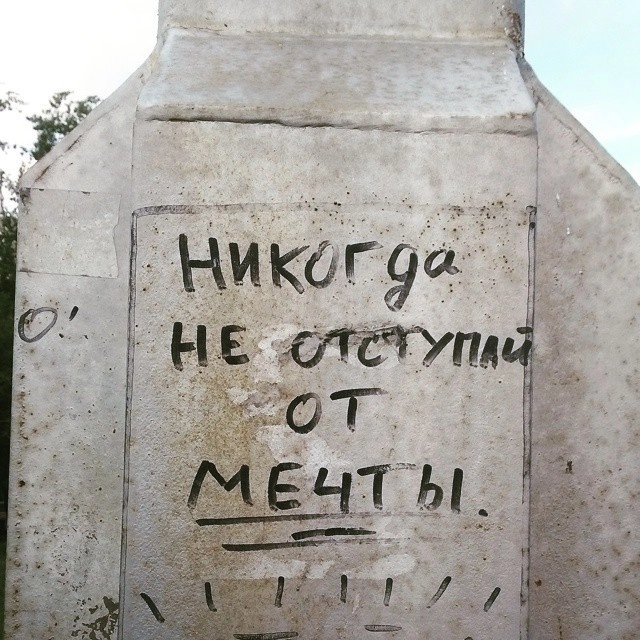 НИКОГда
НЕ ОТСТУПАЙ
ОТ
МЕЧТЫ.
О!